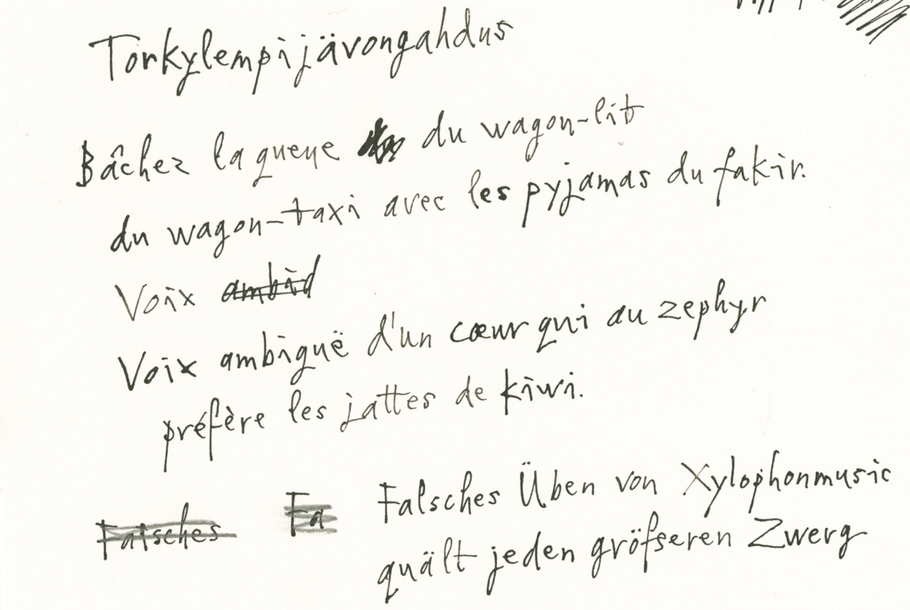 Torkylempijävongahdus
Bâchez la queue du wagon-lit
du wagon-taxi avec les pyjamas du fakir.
Voix ambid
Voix ambiguë d'un cœur qui au zephyr
préfère les jattes de kiwi.
Falsches Fa Falsches Üben von Xylophonmusic
quält jeden größeren Zwerg